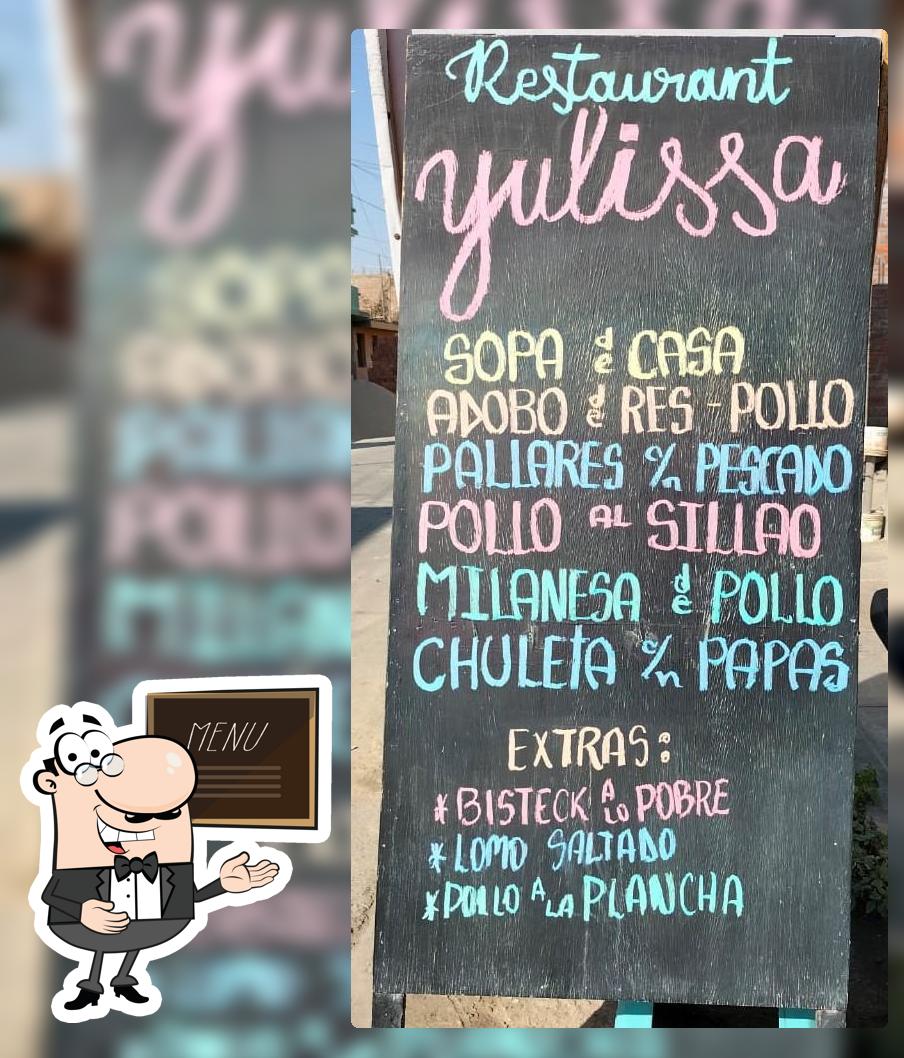 Restaurant
yulissa
SOPA de CASA
ADOBO de RES - POLLO
PALLARES c/n PESCADO
POLLO AL SILLAO
MILANESA de POLLO
CHULETA c/n PAPAS
EXTRAS:
* BISTECK A LO POBRE
* LOMO SALTADO
* POLLO A LA PLANCHA
MENU